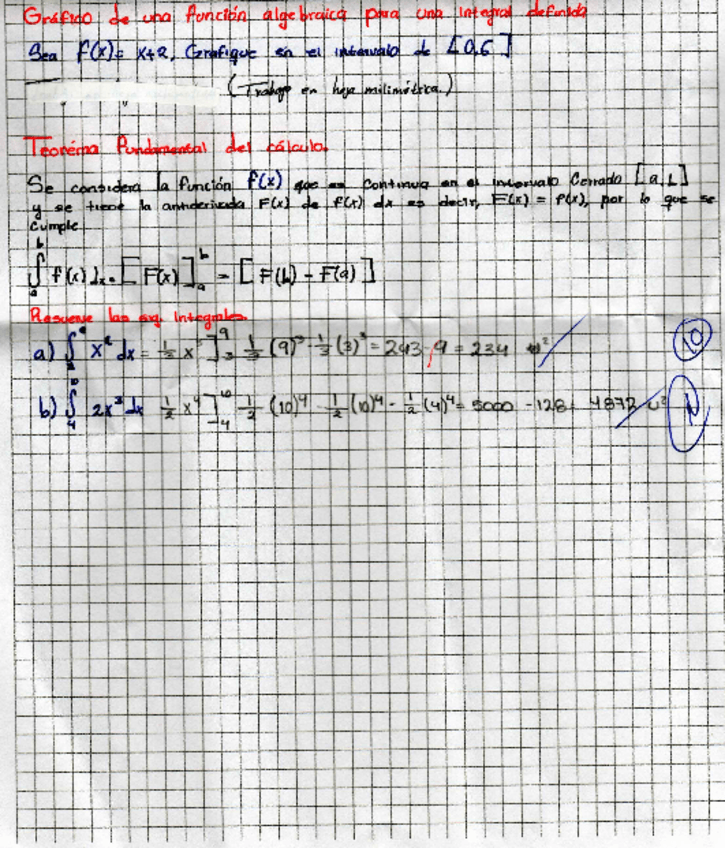 Gráfico de una función algebraica para una integral definida
Sea f(x)= x+2, Grafique en el intervalo de [0,6]
(Trabajo en hoja milimétrica.)
Teoréma Fundamental del cálculo.
Se considera la función f(x) que es continua en el intervalo Cerrado [a,b]
y se tiene la antiderivada F(x) de f(x) dx es decir, F(x) = f(x), por lo que se
cumple
∫ₐᵇ f(x)dx = [F(x)]ₐᵇ = [F(b) - F(a)]
Resuelve las sig. Integrales.
a) ∫₃⁹ x² dx = 1/3 x³]₃⁹ 1/3 (9)³ - 1/3 (3)³ = 243-9 = 234 u²
10
b) ∫₄¹⁰ 2x³ dx 1/2 x⁴]₄¹⁰ 1/2 (10)⁴ - 1/2 (10)⁴ - 1/2 (4)⁴ = 5000 - 128 = 4872 u²